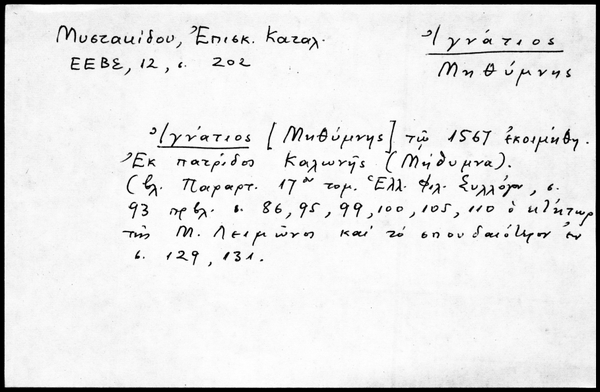 Μυστακίδου, Ἐπισκ. Καταλ.
ΕΕΒΣ, 12, σ. 202
Ἰγνάτιος
Μηθύμνης
Ἰγνάτιος [Μηθύμνης] τῷ 1567 ἐκοιμήθη.
Ἐκ πατρίδος Καλωνῆς (Μήθυμνα).
(βλ. Παραρτ. 17ου τομ. Ἑλλ. Φιλ. Συλλόγου, σ.
93 πρβλ. σ. 86, 95, 99, 100, 105, 110 ὁ κτήτωρ
τῆς Μ. Λειμῶνος καὶ τὸ σπουδαιότερον ἐν
σ. 129, 131.